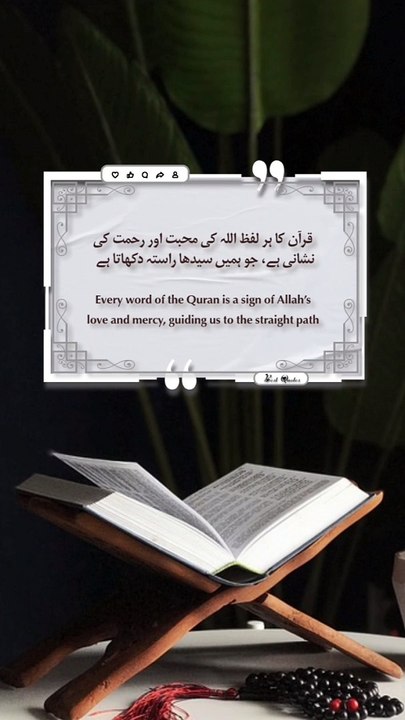 قرآن کا ہر لفظ اللہ کی محبت اور رحمت کی
نشانی ہے، جو ہمیں سیدھا راستہ دکھاتا ہے
Every word of the Quran is a sign of Allah's
love and mercy, guiding us to the straight path